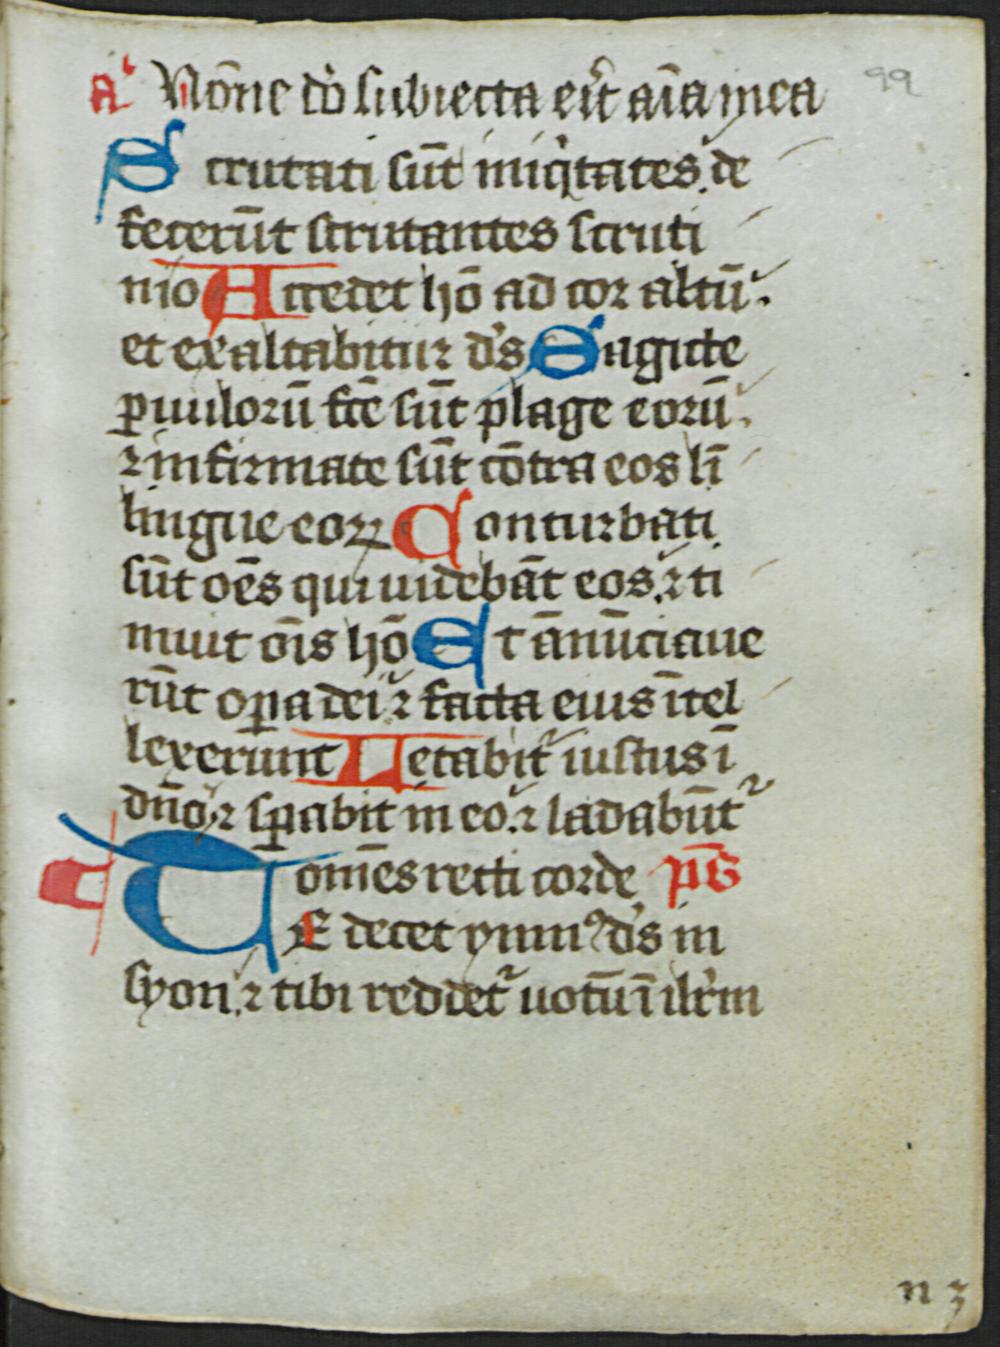 99
a͛ Nōne dō subiecta erit aīa mea
Scrutati sūt iniqitates. de
fecerūt scrutantes scruti
nio Accedet hō ad cor altū.
et exaltabitur ds Sagitte
ꝑuulorū fcē sūt plage eorū.
⁊ infirmate sūt cōtra eos li
lingue eoꝝ Conturbati
sūt oēs qui uidebāt eos. ⁊ ti
muit ōis hō Et ānūciaue
rūt oꝑa dei. ⁊ facta eius ītel
lexerūnt Letabit iustus ī
dn̄o. ⁊ sꝑabit in eo. ⁊ ladabūt
omēs recti corde ps̄
TE decet ymnꝰ ds in
syon. ⁊ tibi reddet uotū ī ilrm
n 3